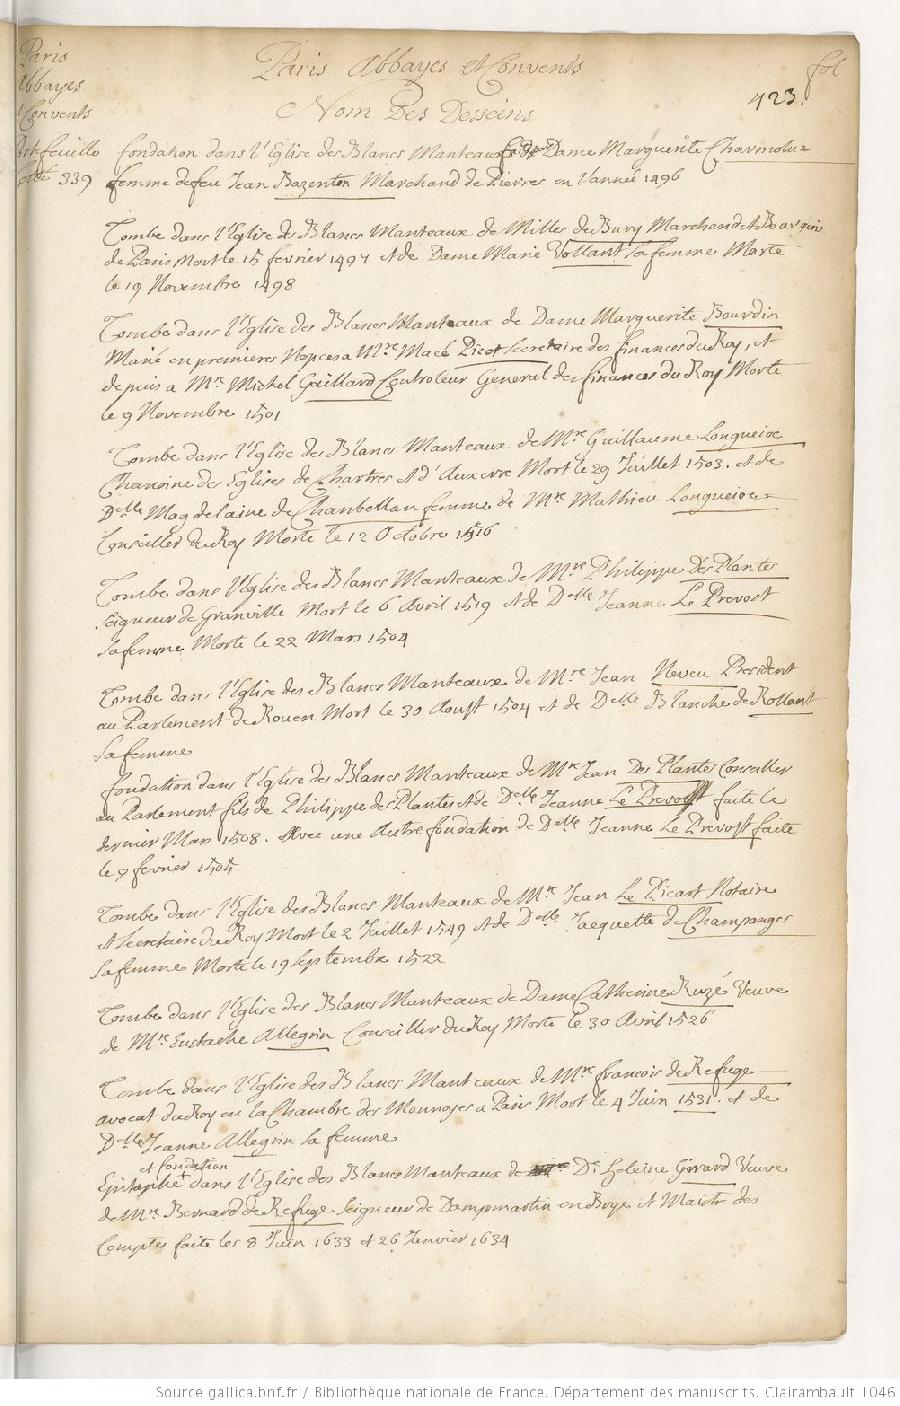 Paris Abbayes et Convents
Paris
abbayes
Convents
fol
423.
Nom Des Desseins
cotté 339
fondation dans l'Eglise des Blancs Manteaux de Dame Marguerite Charmolue
femme de feu Jean Bazenton Marchand de Pierres en l'année 1496
Tombe dans l'Eglise des Blancs Manteaux de Milles de Bury Marchand et Bourgeois
de Paris Mort le 15 février 1497 et de Dame Marie Vollant sa femme Morte
le 19 Novembre 1498
Tombe dans l'Eglise des Blancs Manteaux de Dame Marguerite Bourdin
Marié en premieres Nopces a Mre Macé Picot Secretaire des finances du Roy, et
depuis a Mre Michel Gaillard Controleur General des finances du Roy Morte
le 9 Novembre 1501
Tombe dans l'Eglise des Blancs Manteaux de Mre Guillaume Longueioe
Chanoine des Eglises de Chartres et d'Auxerre Mort le 29 Juillet 1503. et de
Delle Magdelaine de Chanbellan femme de Mre Mathieu Longueioe
Conseiller du Roy Morte le 12 Octobre 1516
Tombe dans l'Eglise des Blancs Manteaux de Mre Philippe Des Plantes
Seigneur de Granville Mort le 6 Avril 1519 et de Delle Jeanne Le Prevost
sa femme Morte le 22 Mars 1504
Tombe dans l'Eglise des Blancs Manteaux de Mre Jean Neveu President
au Parlement de Rouen Mort le 30 Aoust 1504 et de Delle Blanche de Rollant
sa femme
fondation dans l'Eglise des Blancs Manteaux de Mre Jean Des Plantes Conseiller
au Parlement fils de Philippe des Plantes et de Delle Jeanne Le Prevost faite le
dernier Mars 1508. Avec une Autre fondation de Delle Jeanne Le Prevost faite
le 9 fevrier 1505
Tombe dans l'Eglise des Blancs Manteaux de Mre Jean Le Picart Notaire
et Secretaire du Roy Mort le 2 Juillet 1549 et de Delle Jacquette de Champanges
sa femme Morte le 19 Septembre 1522
Tombe dans l'Eglise des Blancs Manteaux de Dame Catherine Ruzé Veuve
de Mre Eustache Allegrin Conseiller du Roy Morte le 30 Avril 1526
Tombe dans l'Eglise des Blancs Manteaux de Mre francois de Refuge
avocat du Roy en la Chambre des Monnoyes a Paris Mort le 4 Juin 1531. et de
Delle Jeanne Allegrin sa femme
et fondation
Epitaphe + dans l'Eglise des Blancs Manteaux de De heleine Girard Veuve
de Mre Bernard de Refuge Seigneur de Dampmartin en Brye et Maitre des
Comptes faite les 8 Juin 1633 et 26 Janvier 1634
Source gallica.bnf.fr / Bibliothèque nationale de France. Département des manuscrits. Clairambault 1046